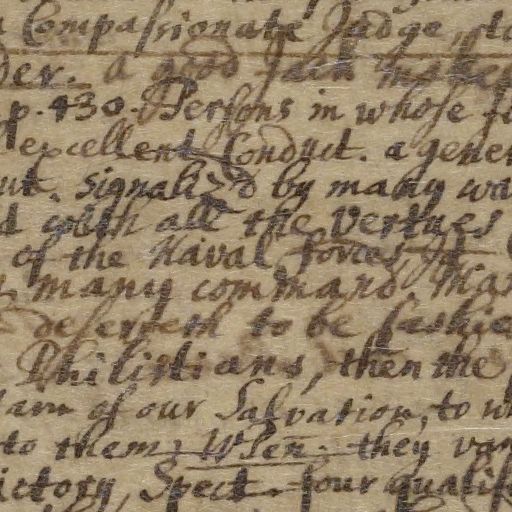 Compassionate Judge, to
der. a good
p. 430. Persons in whose
excellent Conduct. a gener
ut. Signaliz'd by many wa
d with all the Vertues
of the Naval forces
many command.
deserveth to be
Philistians, then the
of our Salvation, to w
to them. When. they van
ictory, Spect. four qualit